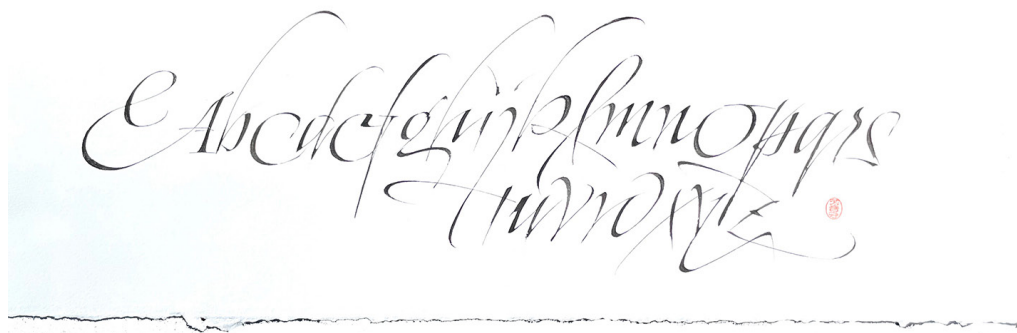 Abcdefghijklmnopqrs
tuvwxyz